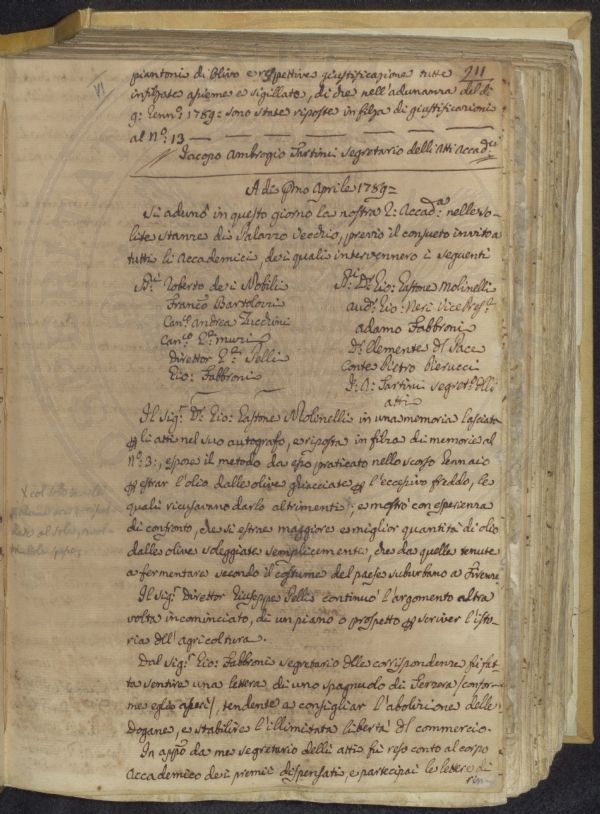 VI
211
piantoni di Olivo e respettive giustificazione tutte
infilzate assieme e sigillate, di che nell'adunanza del dì
9: Genn.º 1789= sono state riposte in filza di giustificazioni
al N.º 13
Jacopo Ambrogio Tartini Segretario delli atti Accad.ci
A dì Pmo Aprile 1789=
Si adunò in questo giorno la nostra R: Accad.a nelle so=
lite stanze di Palazzo Vecchio, previo il consueto invito a
tutti li Accademici, dei quali intervennero i seguenti
SS.ri Roberto dei Nobili
Franc.o Bartolozzi
Can.o Andrea Zucchini
Can.o Muzi
Direttor Pelli
Gio: Fabbroni
SS.ri D.r Gio: Gastone Molinelli
Aud.e Gio: Neri Vice Pres.e
Adamo Fabbroni
D.r Clemente del Pace
Conte Pietro Pierucci
J: A: Tartini Segret.o delli
atti
Il Sig.r D.r Gio: Gastone Molinelli in una memoria lasciata
per li atti nel suo autografo, e riposta in filza di memorie al
N.º 3:, espose il metodo da esso praticato nello scorso Gennaio
per estrar l'olio dalle olive ghiacciate per l'eccessivo freddo, le
quali ricusavano darlo altrimenti; e mostrò con esperienza
di confronto, che si estrae maggiore e miglior quantità di olio
dalle olive soleggiate semplicemente, che da quelle tenute
a fermentare secondo il costume del paese suburbano a Firenze
Il Sig.r Direttor Giuseppe Pelli continuò l'argomento altra
volta incominciato, di un piano o prospetto per scriver l'isto=
ria dell'agricoltura.
Dal Sig.r Gio: Fabbroni segretario delle corrispondenze fù fat=
ta sentire una lettera di uno spagnuolo di (confor=
me egli asserì), tendente a consigliar l'abolizione delle
Dogane, e stabilire l'illimitata libertà del commercio.
In app.o da me segretario delli atti fù reso conto al corpo
Accademico dei premii dispensati, e partecipai le lettere di
rin=